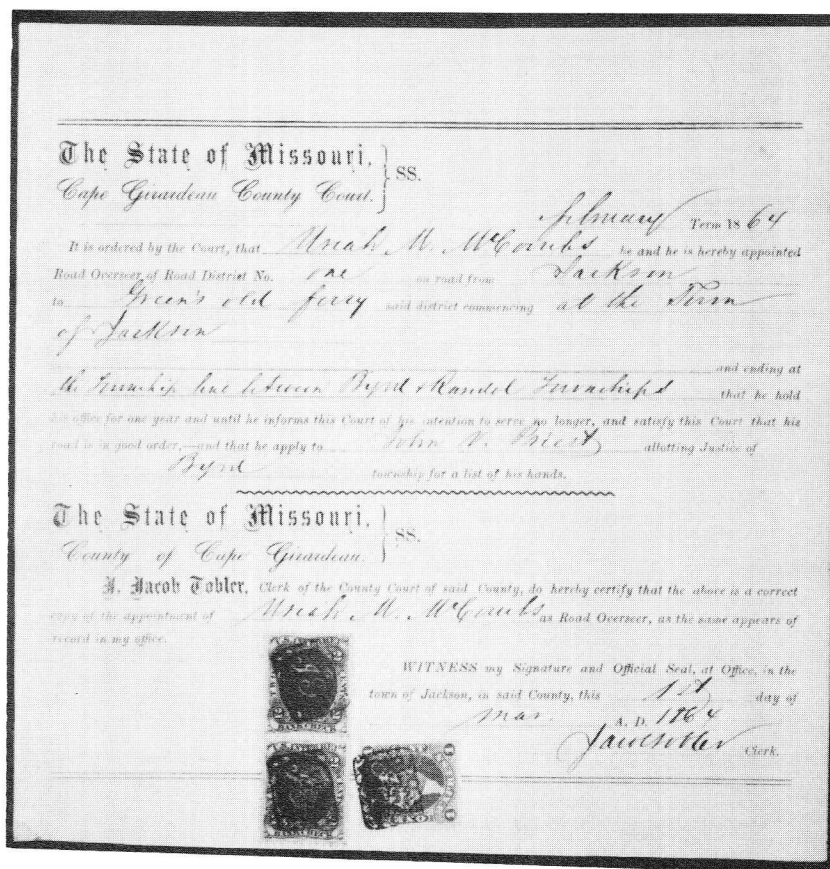 The State of Missouri, } SS.
Cape Girardeau County Court.
February Term 1864
It is ordered by the Court, that Uriah M. McCombs be and he is hereby appointed
Road Overseer of Road District No. one on road from Jackson
to Green's old ferry said district commencing at the Town
of Jackson
and ending at
the Township line between Byrd & Randol Townships that he hold
his office for one year and until he informs this Court of his intention to serve no longer, and satisfy this Court that his
road is in good order,—and that he apply to John V. Priest allotting Justice of
Byrd township for a list of his hands.
The State of Missouri, } SS.
County of Cape Girardeau.
I, Jacob Tobler, Clerk of the County Court of said County, do hereby certify that the above is a correct
copy of the appointment of Uriah M. McCombs as Road Overseer, as the same appears of
record in my office.
WITNESS my Signature and Official Seal, at Office, in the
town of Jackson, in said County, this 1st day of
Mar. A. D. 1864
Jacob Tobler Clerk.
BANK CHECK
BANK CHECK